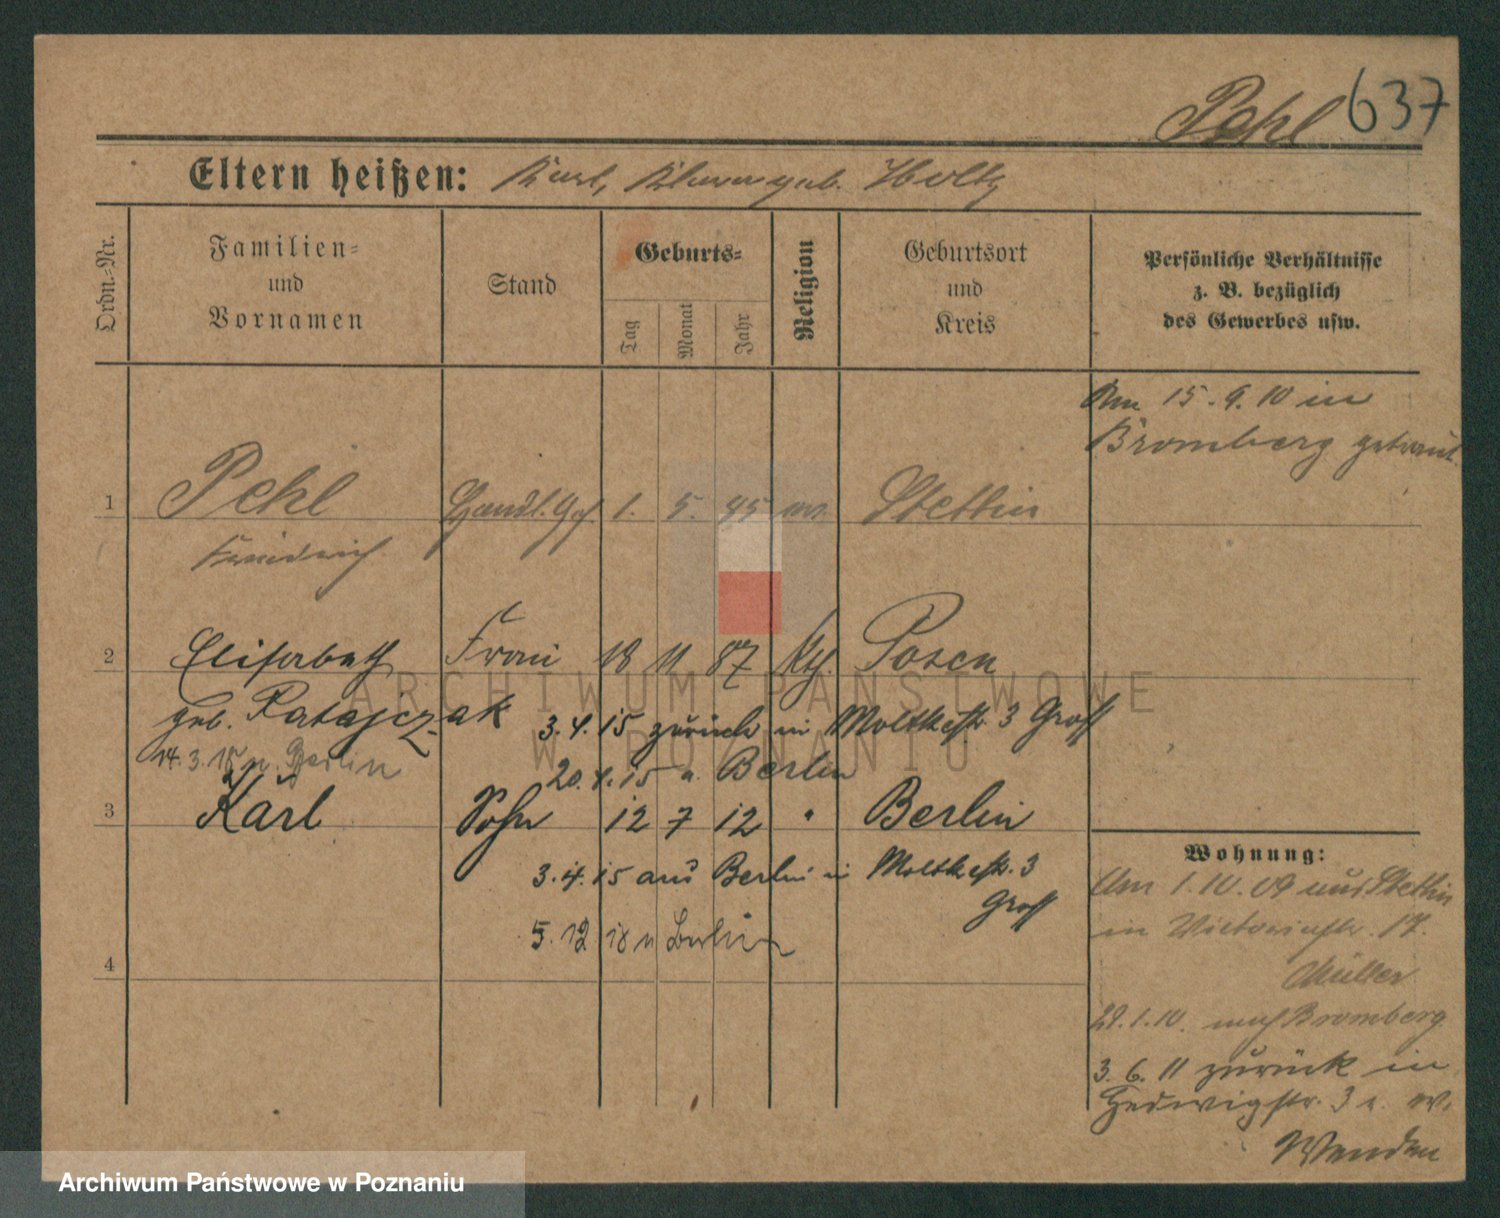 Pehl 637
Eltern heißen: Karl, geb. Holtz
Ordn.=Nr.
Familien=
und
Vornamen
Stand
Geburts=
Tag
Monat
Jahr
Religion
Geburtsort
und
Kreis
Persönliche Verhältnisse
z. B. bezüglich
des Gewerbes usw.
Am 15.9.10 in
Bromberg getraut
1 Pehl Handl. Geh. 1. 5. 85 ev. Stettin
Friedrich
2 Elisabeth Frau 18 11 87 kth. Posen
geb. Ratajczak 3.4.15 zurück in Moltkestr. 3 Groß
14.3.15 n. Berlin
20.4.15 n. Berlin
3 Karl Sohn 12 7 12 " Berlin
3.4.15 aus Berlin in Moltkestr. 3
Groß
5.12 18 n Berlin
4
Wohnung:
Am 1.10.09 aus Stettin
in Victoriastr. 17.
Müller
29.1.10. nach Bromberg
3.6.11 zurück in
Hedwigstr. 3 
Wenden
ARCHIWUM PAŃSTWOWE
W POZNANIU
Archiwum Państwowe w Poznaniu